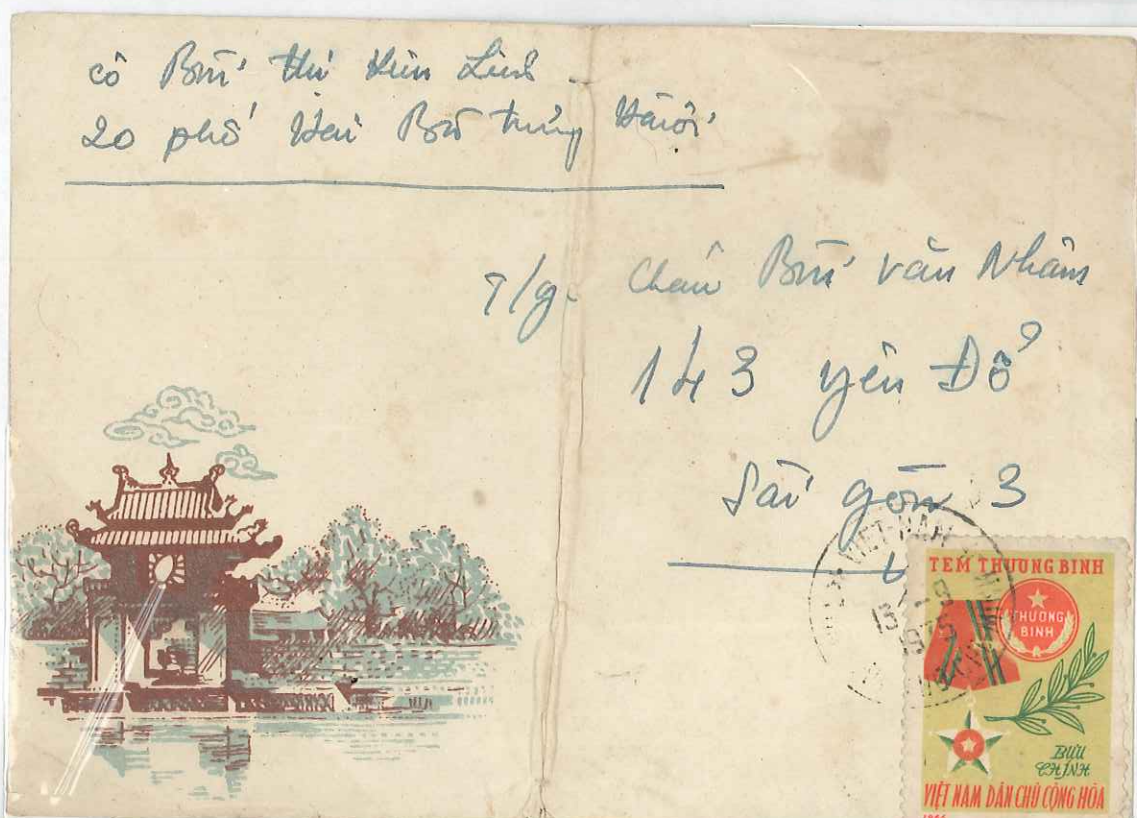 cô Bùi thị Kim Linh
20 phố Hai Bà trưng Hà nội
T/g. Cháu Bùi văn Nhâm
143 yên Đổ
Sài gòn 3
VIET-NAM
15 - 9
1975
TEM THƯƠNG BINH
THƯƠNG
BINH
BƯU
CHÍNH
VIỆT NAM DÂN CHỦ CỘNG HÒA